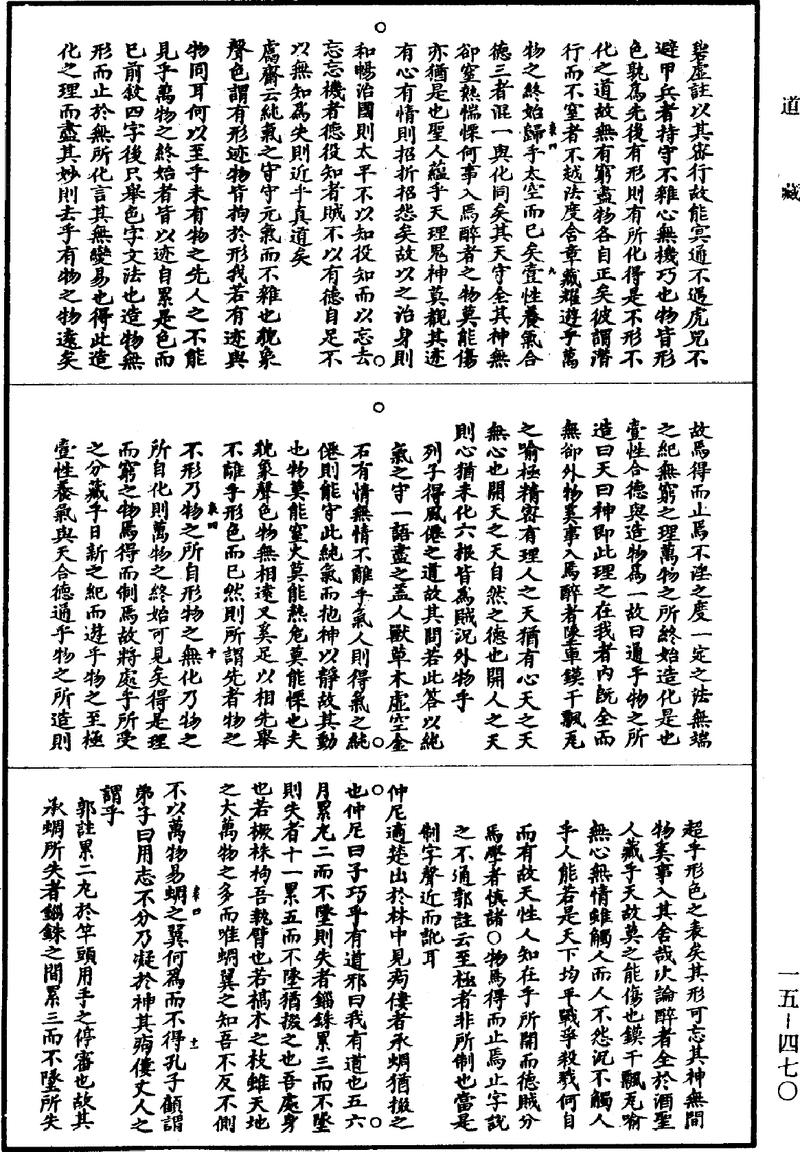 道藏
碧虛註以其密行故能冥通不遇虎兕不
避甲兵者持守不雜心無機巧也物皆形
色孰為先後有形則有所化得是不形不
化之道故無有窮盡物各自正矣彼謂潛
行而不窒者不越法度含章藏耀遊乎萬
物之終始歸乎太空而已矣壹性養氣合
德三者混一與化同矣其天守全其神無
卻窒熱惴慄何事入焉醉者之物莫能傷
亦猶是也聖人蘊乎天理鬼神莫覩其迹
有心有情則招折招怨矣故以之治身則
和暢治國則太平不以知役知而以忘去
忘忘機者德役知者賊不以有德自足不
以無知為失則近乎真道矣
鬳齋云純氣之守守元氣而不雜也貌象
聲色謂有形迹物皆拘於形我若有迹與
物同耳何以至乎未有物之先人之不能
見乎萬物之終始者皆以迹自累是色而
已前敘四字後只舉色字文法也造物無
形而止於無所化言其無變易也得此造
化之理而盡其妙則去乎有物之物遠矣
故焉得而止焉不淫之度一定之法無端
之紀無窮之理萬物之所終始造化是也
壹性合德與造物為一故曰通乎物之所
造曰天曰神即此理之在我者內既全而
無卻外物奚事入焉醉者墜車鏌干飄瓦
之喻極精密有理人之天猶有心天之天
無心也開天之天自然之德也開人之天
則心猶未化六根皆為賊況外物乎
列子得風僊之道故其問若此答以純
氣之守一語盡之蓋人獸草木虛空金
石有情無情不離乎氣人則得氣之純
僊則能守此純氣而怉神以靜故其動
也物莫能窒火莫能熱危莫能慄也夫
貌象聲色物無相遠又奚足以相先舉
不離乎形色而已然則所謂先者物之
不形乃物之所自形物之無化乃物之
所自化則萬物之終始可見矣得是理
而窮之物焉得而制焉故將處乎所受
之分藏乎日新之紀而遊乎物之至極
壹性養氣與天合德通乎物之所造則
超乎形色之表矣其形可忘其神無間
物奚事入其舍哉次論醉者全於酒聖
人藏乎天故莫之能傷也鏌干飄瓦喻
無心無情雖觸人而人不怨況不觸人
乎人能若是天下均平戰爭殺戮何自
而有故天性人知在乎所開而德賊分
焉學者慎諸○物焉得而止焉止字說
之不通郭註云至極者非所制也當是
制字聲近而訛耳
仲尼適楚出於林中見痀僂者承蜩猶掇之
也仲尼曰子巧乎有道邪曰我有道也五六
月累丸二而不墜則失者錙銖累三而不墜
則失者十一累五而不墜猶掇之也吾處身
也若橛株枸吾執臂也若槁木之枝雖天地
之大萬物之多而唯蜩翼之知吾不反不側
不以萬物易蜩之翼何為而不得孔子顧謂
弟子曰用志不分乃凝於神其痀僂丈人之
謂乎
郭註累二丸於竿頭用手之停審也故其
承蜩所失者錙銖之間累三而不墜所失
一五-四七〇